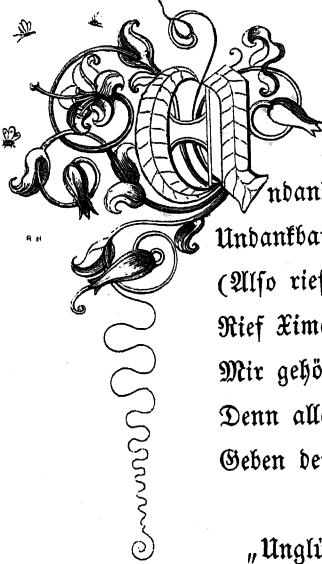 Undank
Undankbar
(Also rief
Rief Xime
Mir gehö
Denn alle
Geben de
„Unglü